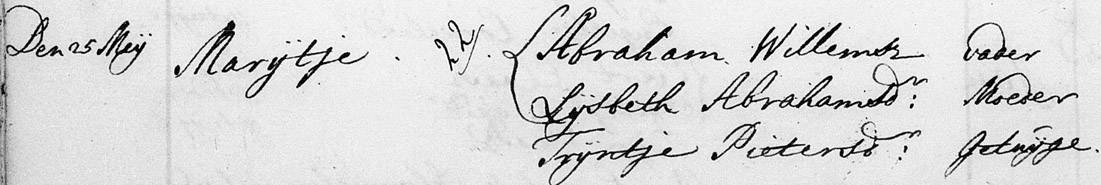 Den 25 Meij Marijtje. 22. Abraham Willemsz vader
Lijsbeth Abrahamsdr: Moeder
Trijntje Pietersdr: getuijge.